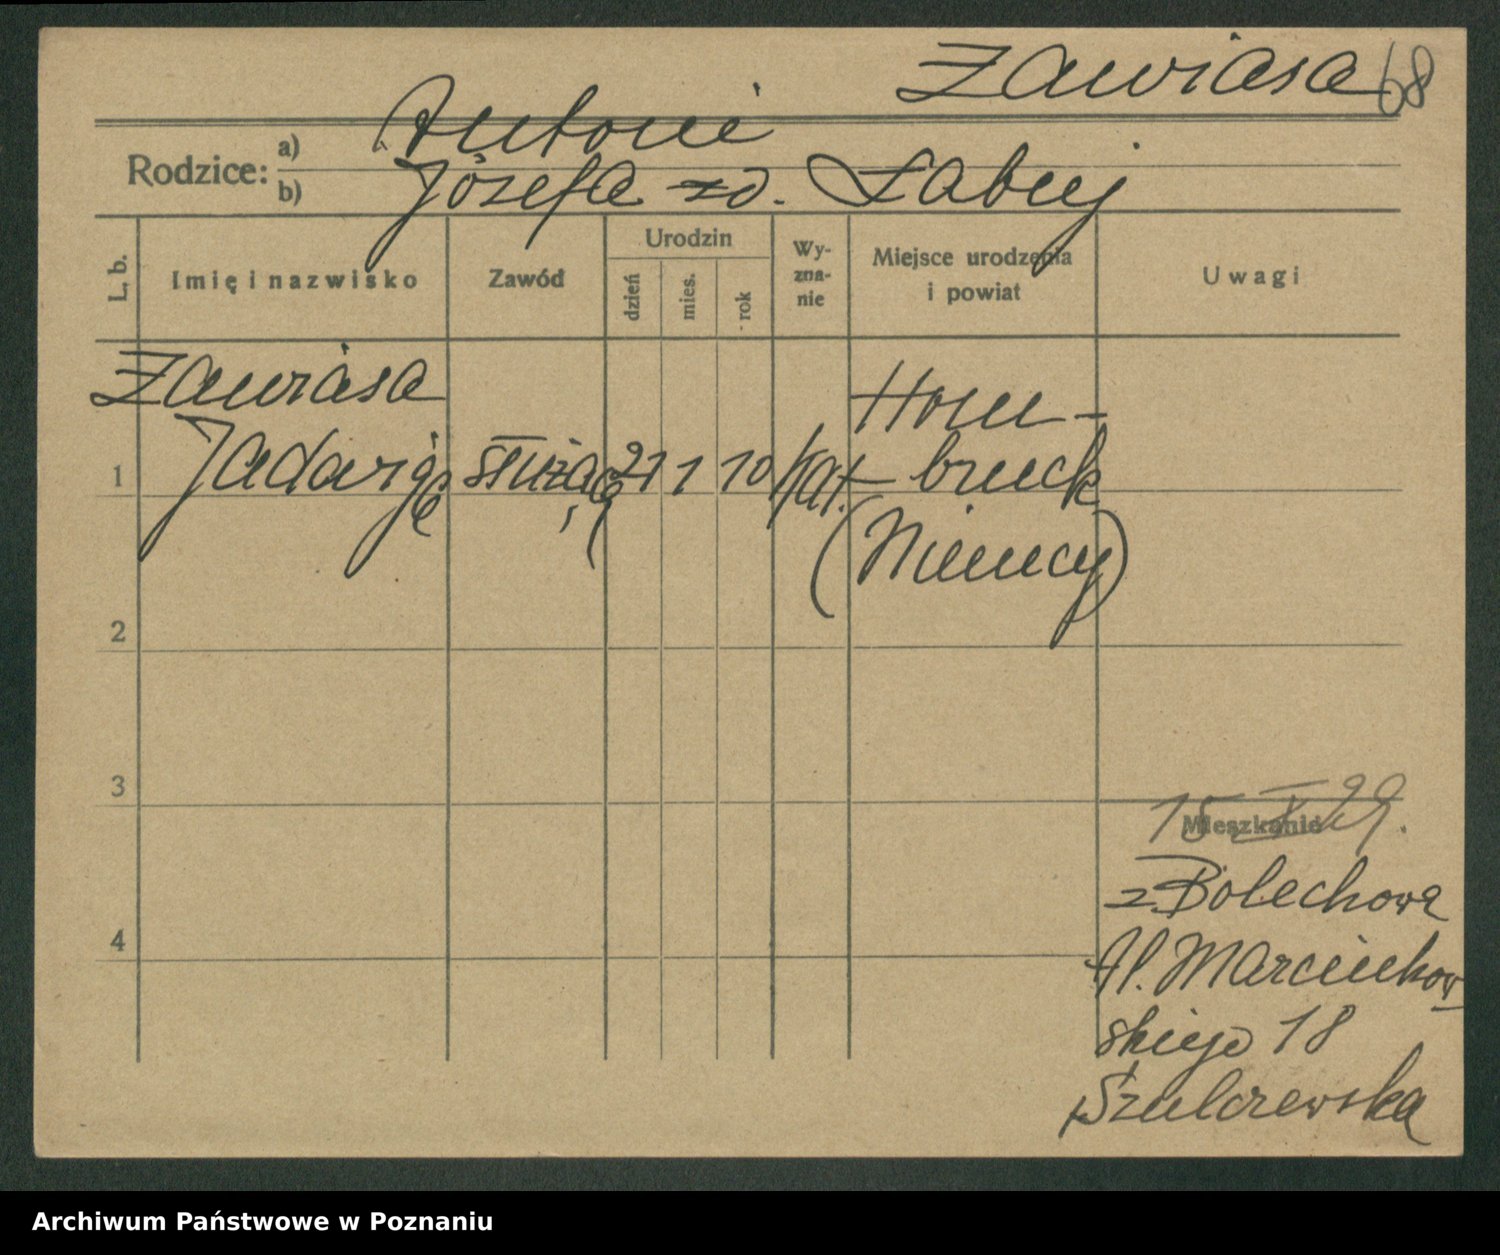 Zawiasa 68
Antoni
Rodzice: a)
b) Józefa zd. Łabuj
L. b. Imię i nazwisko Zawód Urodzin dzień mies. rok Wy-zna-nie Miejsce urodzenia i powiat Uwagi
Zawiasa Horn-
1 Jadwiga służąca 21 1 10 kat. bruck
(Niemcy)
2
3
15 X 29.
Mieszkanie
z Bolechowa
4
Al. Marcinkow
skiego 18
Szulczewska
Archiwum Państwowe w Poznaniu